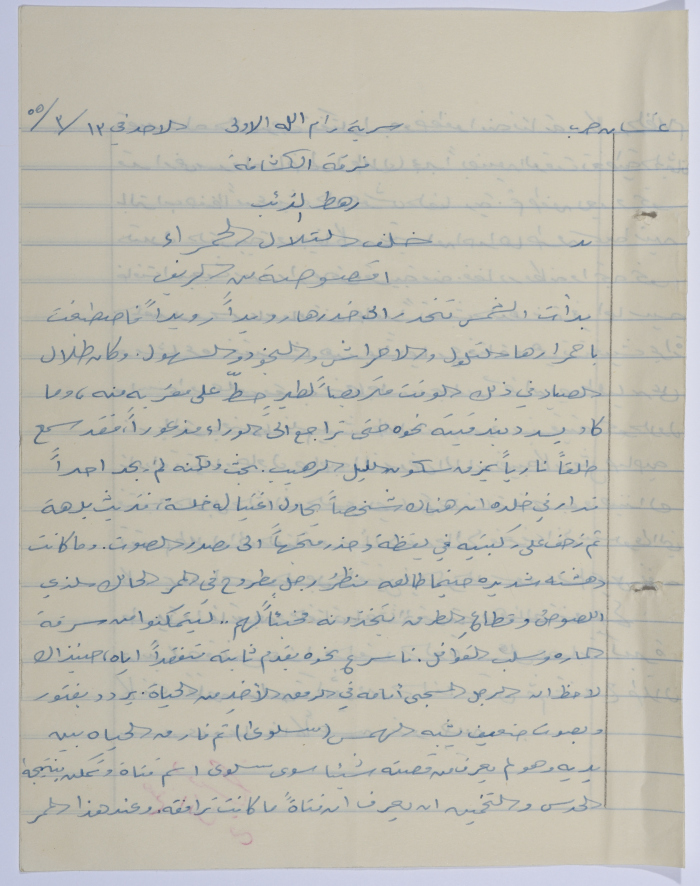 غسان حرب سرية رام الله الاولى الاحد في ١٣ / ٣ / ٥٥
فرقة الكشافة
رهط الذئب
خلف التلال الحمراء
اقصوصة من الريف
بدأت الشمس تنحدر الى خدرها رويداً رويداً فاصطبغت
باحمرارها التلول والاحراش والنجود والسهول. وكان طلال
الصياد في ذلك الوقت متربصاً لطير حطّ على مقربة منه، وما
كاد يسدد بندقيته نحوه حتى تراجع الى الوراء مذعوراً، فقد سمع
طلقاً نارياً يمزق سكون الليل الرهيب. بحث ولكنه لم يجد احداً
فدار في خلده ان هناك شخصاً يحاول اغتياله خلسة، فتريث برهة
ثم زحف على ركبتيه في يقظة وحذر متجهاً الى مصدر الصوت. وما كانت
دهشته شديدة حينما طالعه منظر رجل مطروح في الممر الحالك الذي
اللصوص وقطاع الطرق يتخذونه مخبئاً لهم .. ليتمكنوا من سرقة
المارة وسلب القوافل. فاسرع نحوه بقدم ثابتة متفقداً اياه، حينذاك
لاحظ ان الرجل المسجى أمامه في الرمق الأخير من الحياة. يردد بفتور
وبصوت ضعيف يشبه الهمس (سلوى) ثم فارق الحياة بين
يديه وهو لم يعرف من قصته شيئا سوى سلوى اسم فتاة وتمكن بنتيجة
الحدس والتخمين ان يعرف ان فتاةً ما كانت ترافقه. وعند هذا الممر